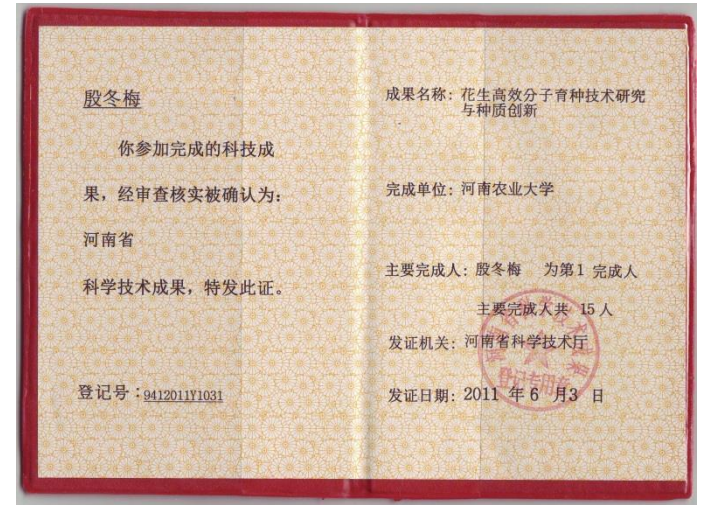 殷冬梅
你参加完成的科技成
果，经审查核实被确认为：
河南省
科学技术成果，特发此证。
登记号：9412011Y1031
成果名称：花生高效分子育种技术研究
与种质创新
完成单位：河南农业大学
主要完成人：殷冬梅 为第1 完成人
主要完成人共 15人
发证机关：河南省科学技术厅
发证日期：2011 年 6 月3 日
河南省科学技术成果
登记专用章